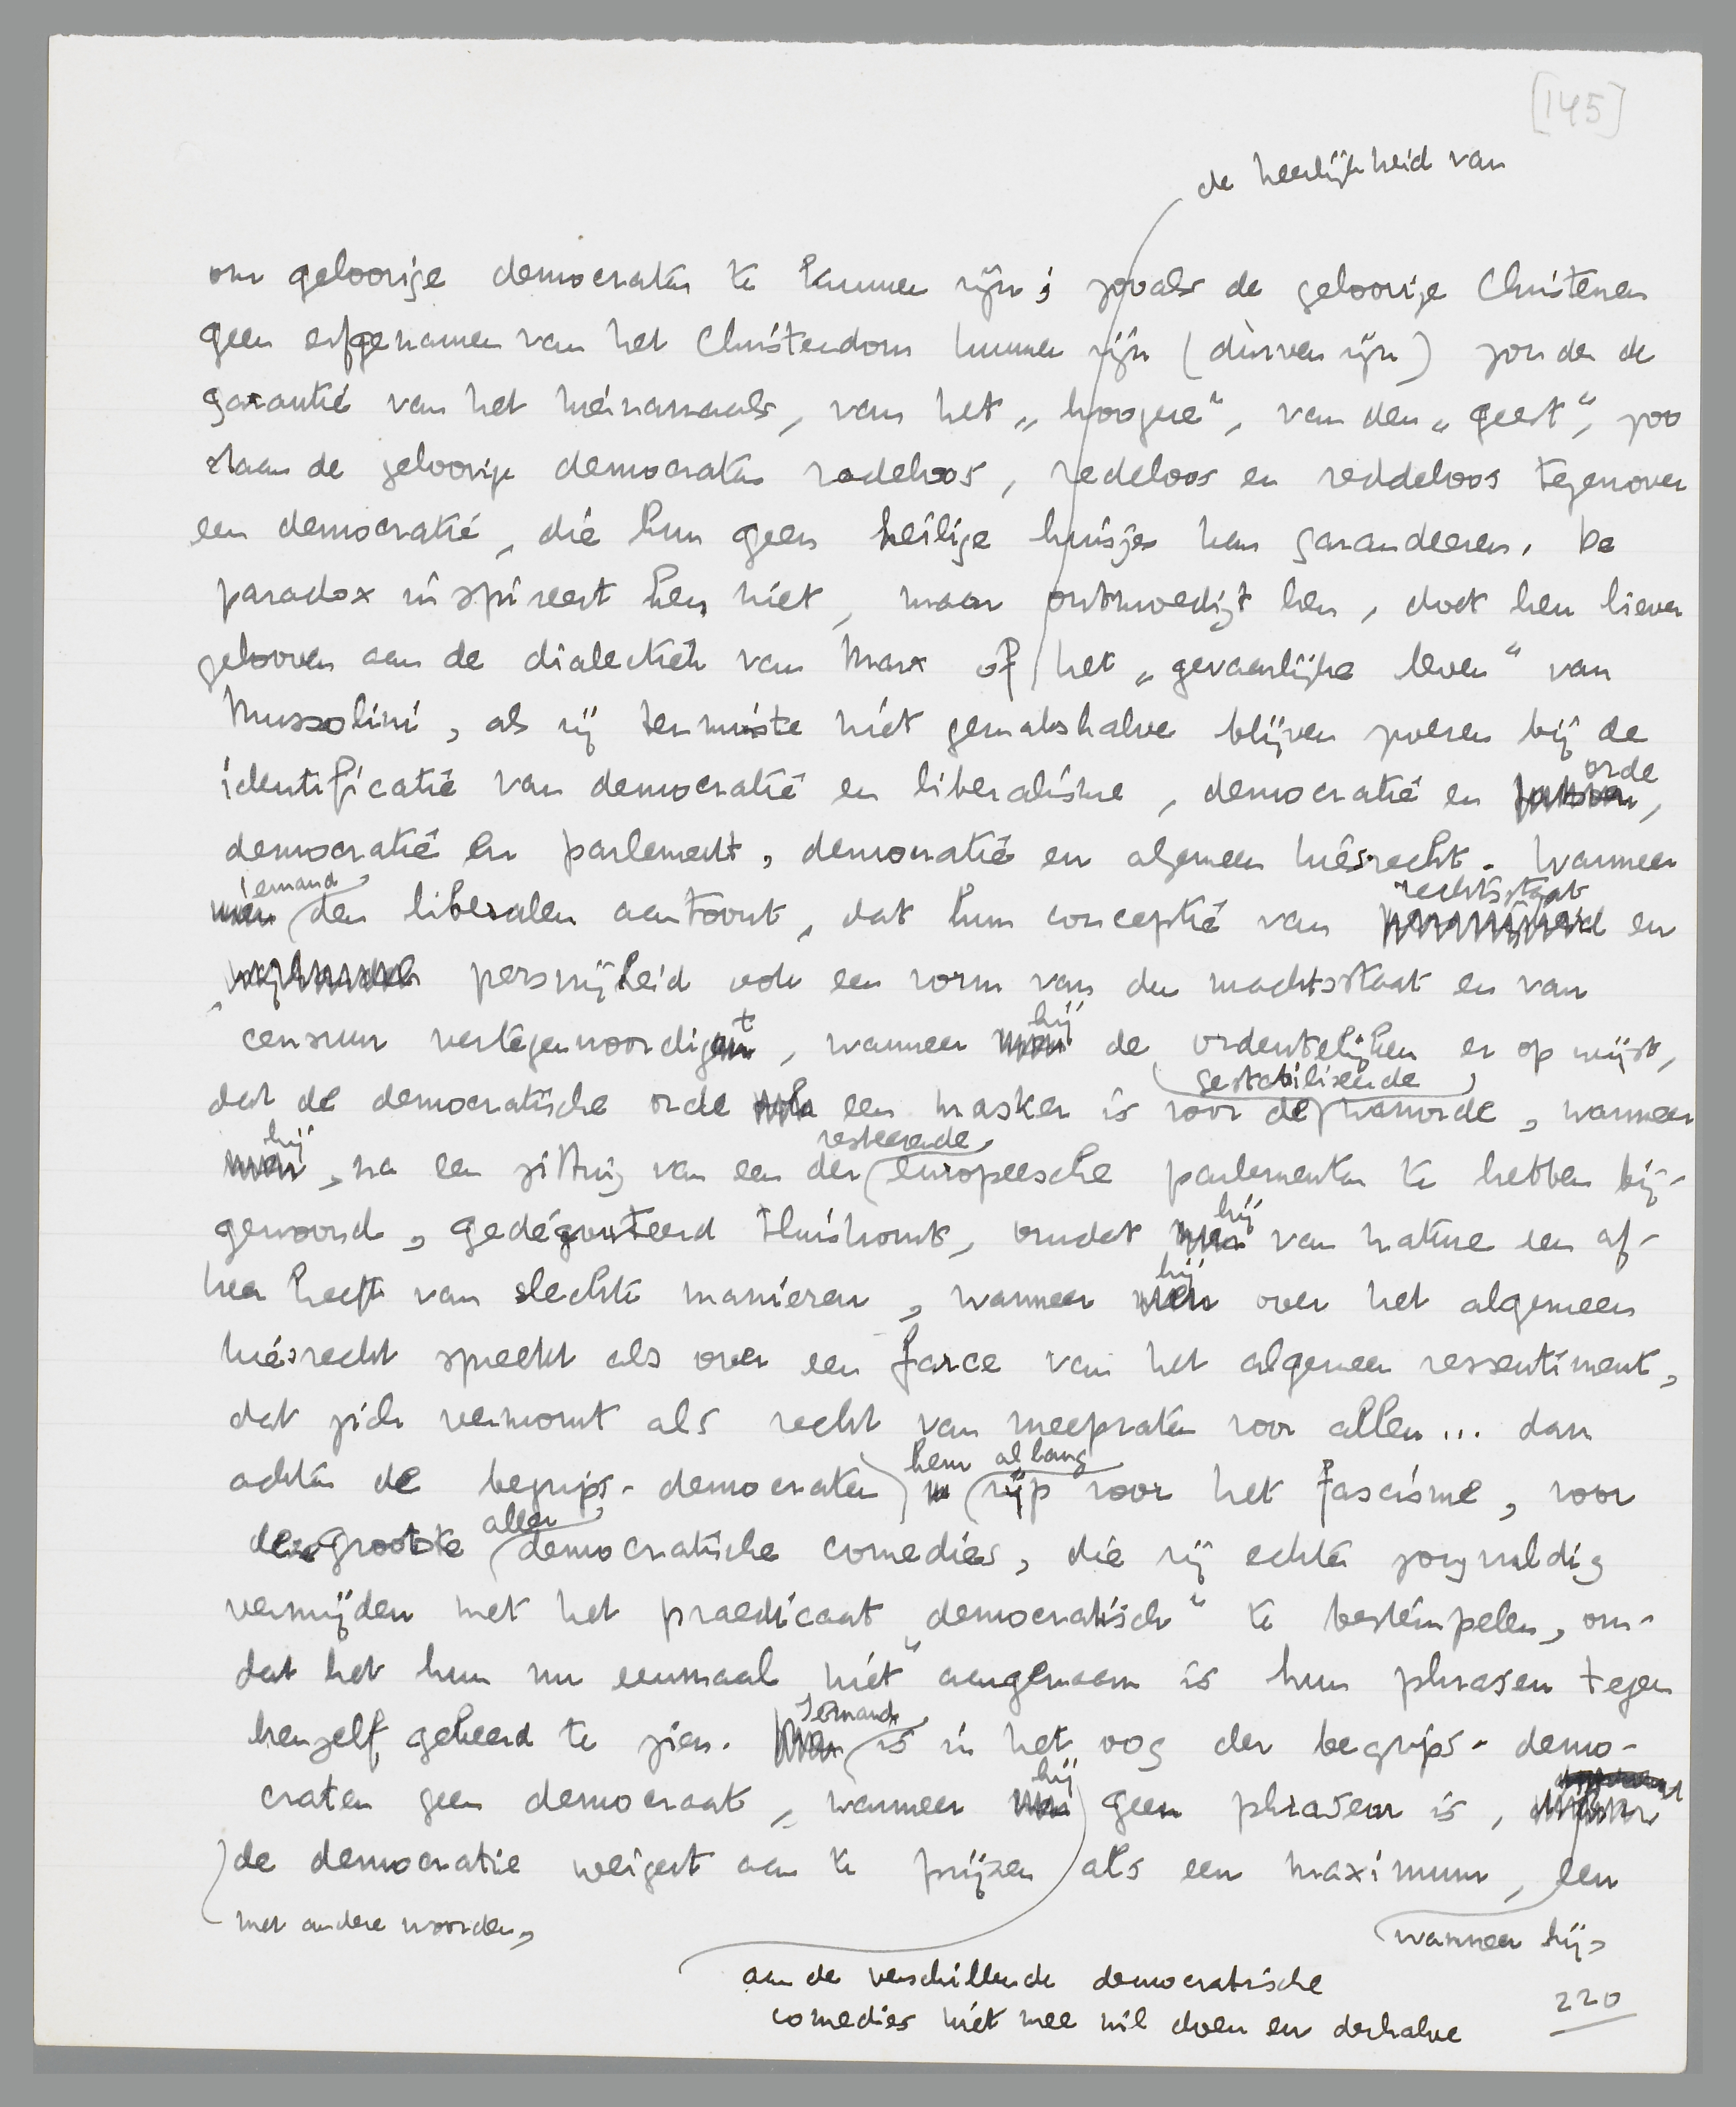 [145]
de heerlijkheid van
om geloovige democraten te kunnen zijn; zooals de geloovige Christenen
geen erfgenamen van het Christendom kunnen zijn (dùrven zijn) zonder de
garantie van het hiernamaals, van het „hoogere", van den „geest", zoo
staan de geloovige democraten radeloos, redeloos en reddeloos tegenover
een democratie, die hun geen heilige huisjes kan garandeeren. De
paradox inspireert hen niet, maar ontmoedigt hen, doet hen liever
gelooven aan de dialectiek van Marx of het „gevaarlijke leven" van
Mussolini, als zij tenminste niet gemakshalve blijven zweren bij de
identificatie van democratie en liberalisme, democratie en orde,
democratie en parlement, democratie en algemeen kiesrecht. Wanneer
men iemand den liberalen aantoont, dat hun conceptie van rechtsstaat en
persvrijheid ook een vorm van den machtsstaat en van
censuur vertegenwoordigt, wanneer men hij de ordentelijken er op wijst,
dat de democratische orde een masker is voor de gestabiliseerde wanorde, wanneer
men hij, na een zitting van een der resteerende europeesche parlementen te hebben bij-
gewoond, gedégouteerd thuiskomt, omdat men hij van nature een af-
keer heeft van slechte manieren, wanneer men hij over het algemeen
kiesrecht spreekt als over een farce van het algemeen ressentiment,
dat zich vermomt als recht van meepraten voor allen... dan
achten de begrips-democraten hem allang rijp voor het fascisme, voor
de grootste aller democratische comedies, die zij echter zorgvuldig
vermijden met het praedicaat „democratisch" te bestempelen, om-
dat het hun nu eenmaal niet aangenaam is hun phrasen tegen
henzelf gekeerd te zien. Men Iemand is in het oog der begrips-demo-
craten geen democraat, wanneer men hij geen phraseur is,
de democratie weigert aan te prijzen als een maximum, een
met andere woorden,
wanneer hij
aan de verschillende democratische
comedies niet mee wil doen en derhalve
220